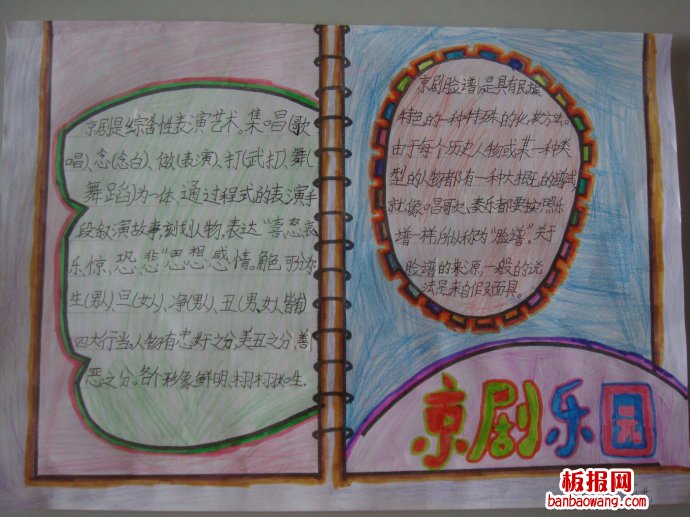 京剧是综合性表演艺术。集唱(歌
唱)、念(念白)、做(表演)、打(武打)、舞(
舞蹈)为一体、通过程式的表演手
段叙演故事刻划人物,表达“喜、怒、哀、
乐、惊、恐、悲”思想感情。角色可分为:
生(男人)、旦(女人)、净(男人)、丑(男、女人皆有)
四大行当。人物有忠奸之分,美丑之分、善
恶之分。各个形像鲜明、栩栩如生.
京剧脸谱,是具有民族
特色的一种特殊的化妆方法。
由于每个历史人物或某一种类
型的人物都有一种大概的谱式,
就像唱歌、奏乐都要按照乐
谱一样,所以称为“脸谱”。关于
脸谱的来源,一般的说
法是来自假面具。
京剧乐园
板报网
banbaowang.com